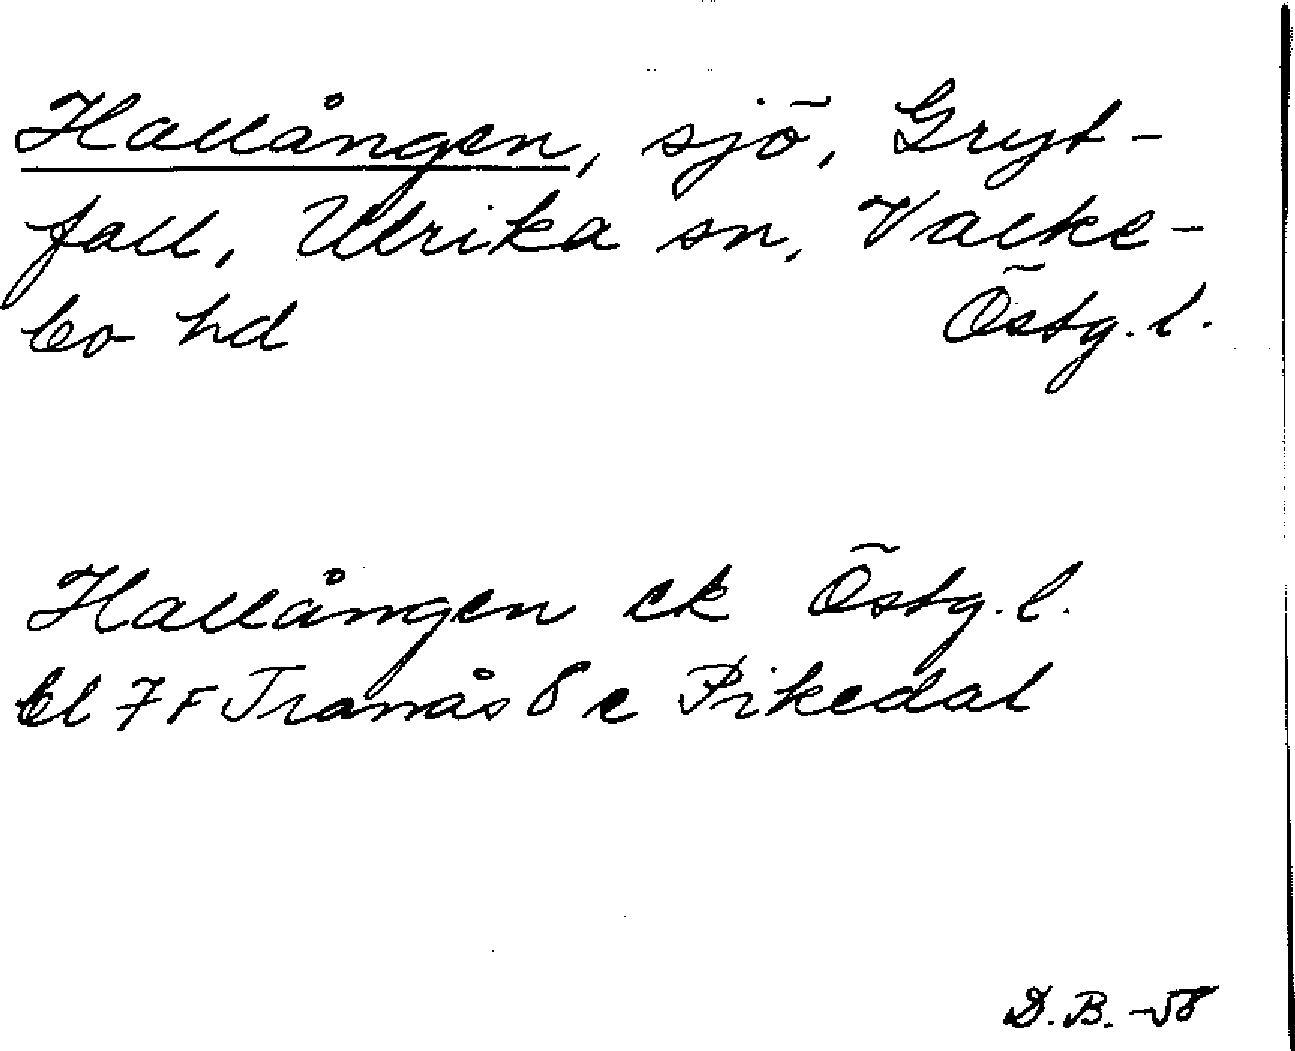 Hallången, sjö, Gryt-
fall, Ulrika sn, Valke-
bo hd Östg. l.
Hallången ek Östg. l.
bl 7F Tranås 8 c Pikedal
D.B. -58